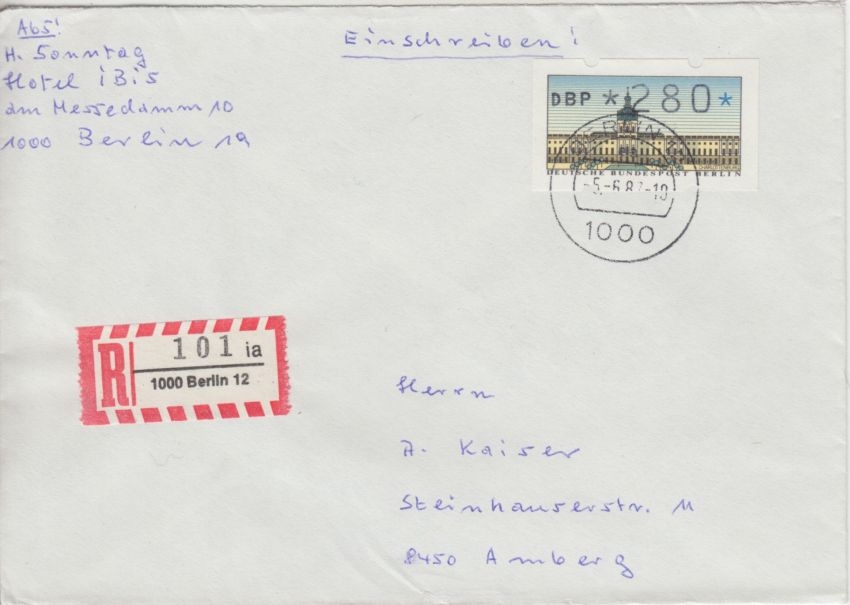 Abs!
H. Sonntag
Hotel iBiS
am Messedamm 10
1000 Berlin 19
Einschreiben!
DBP *280*
CHARLOTTENBURG
DEUTSCHE BUNDESPOST BERLIN
BERLIN
-5.-6.87-10
1000
R
101 ia
1000 Berlin 12
Herrn
A. Kaiser
Steinhauserstr. 11
8450 Amberg